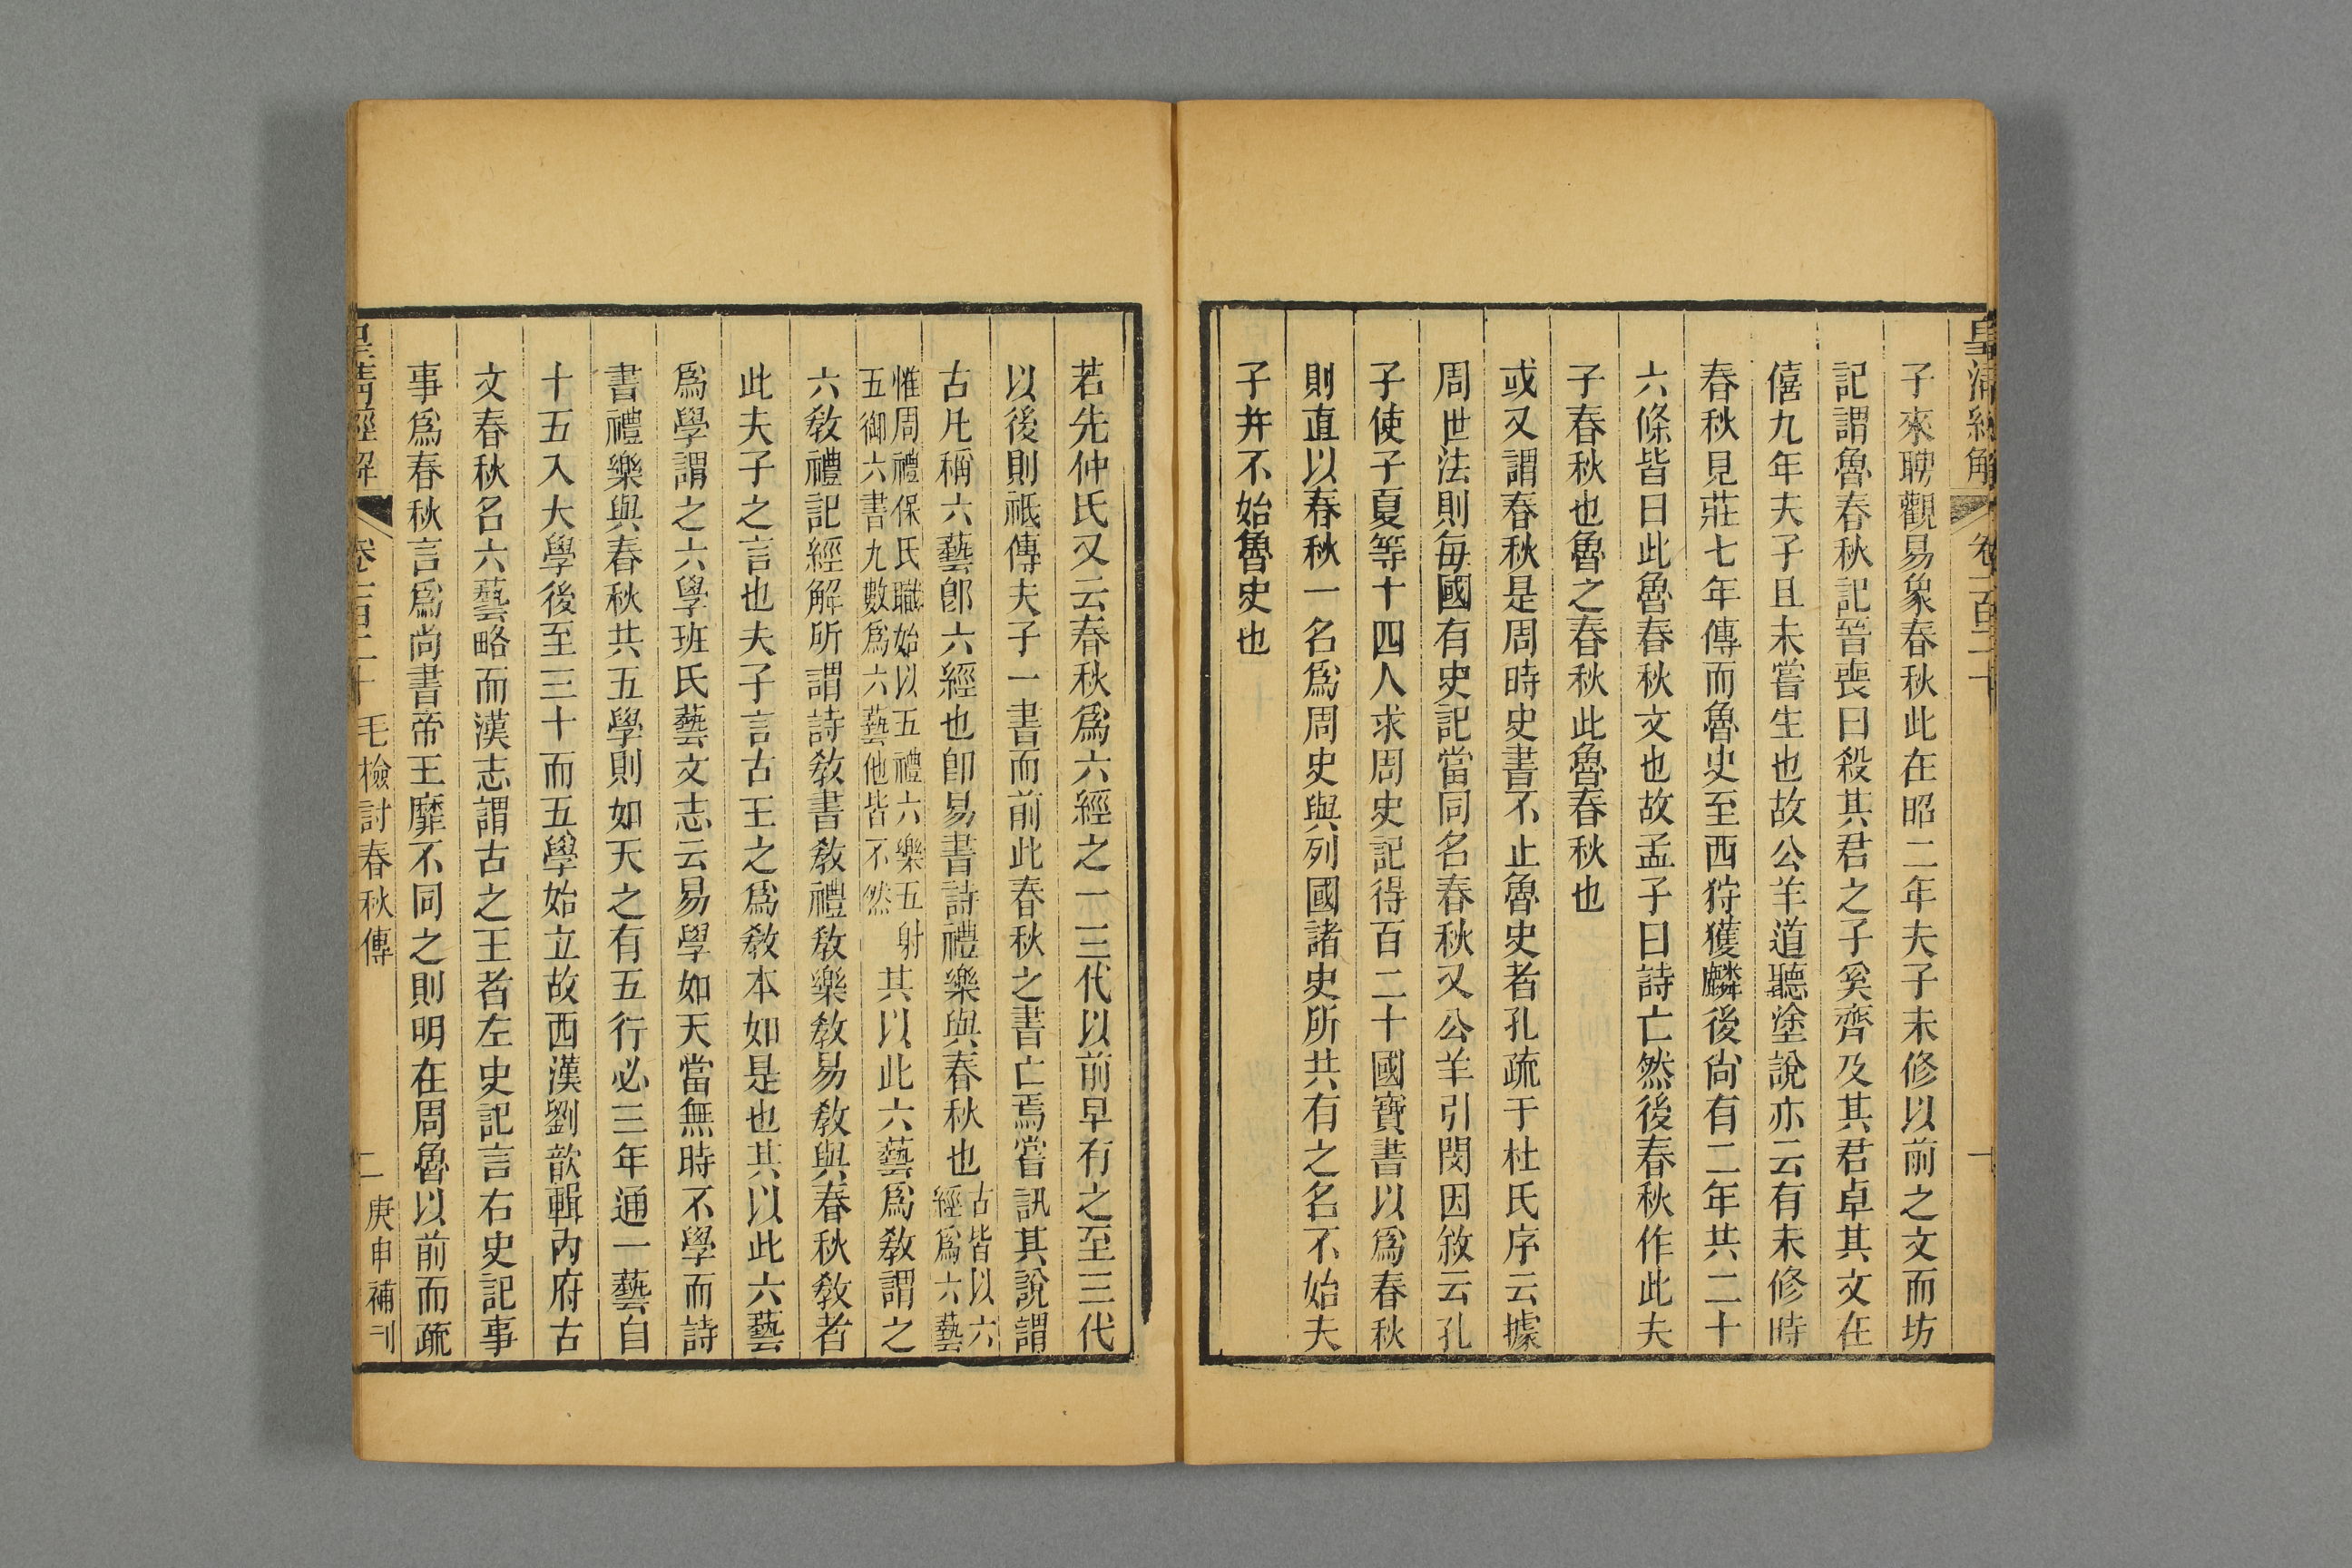 皇清經解
卷一百二十
一
子來聘觀易象春秋此在昭二年夫子未修以前之文而坊
記謂魯春秋記晉喪曰殺其君之子奚齊及其君卓其文在
僖九年夫子且未嘗生也故公羊道聽塗說亦云有未修時
春秋見莊七年傳而魯史至西狩獲麟後尙有二年共二十
六條皆曰此魯春秋文也故孟子曰詩亡然後春秋作此夫
子春秋也魯之春秋此魯春秋也
或又謂春秋是周時史書不止魯史者孔疏于杜氏序云據
周世法則每國有史記當同名春秋又公羊引閔因敘云孔
子使子夏等十四人求周史記得百二十國寶書以爲春秋
則直以春秋一名爲周史與列國諸史所共有之名不始夫
子幷不始魯史也
若先仲氏又云春秋爲六經之一三代以前早有之至三代
以後則祇傳夫子一書而前此春秋之書亡焉嘗訊其說謂
古凡稱六藝卽六經也卽易書詩禮樂與春秋也古皆以六經爲六藝
惟周禮保氏職始以五禮六樂五射五御六書九數爲六藝他皆不然其以此六藝爲敎謂之
六敎禮記經解所謂詩敎書敎禮敎樂敎易敎與春秋敎者
此夫子之言也夫子言古王之爲敎本如是也其以此六藝
爲學謂之六學班氏藝文志云易學如天當無時不學而詩
書禮樂與春秋共五學則如天之有五行必三年通一藝自
十五入大學後至三十而五學始立故西漢劉歆輯內府古
文春秋名六藝略而漢志謂古之王者左史記言右史記事
事爲春秋言爲尙書帝王靡不同之則明在周魯以前而疏
皇清經解
卷一百二十
毛檢討春秋傳
二
庚申補刊